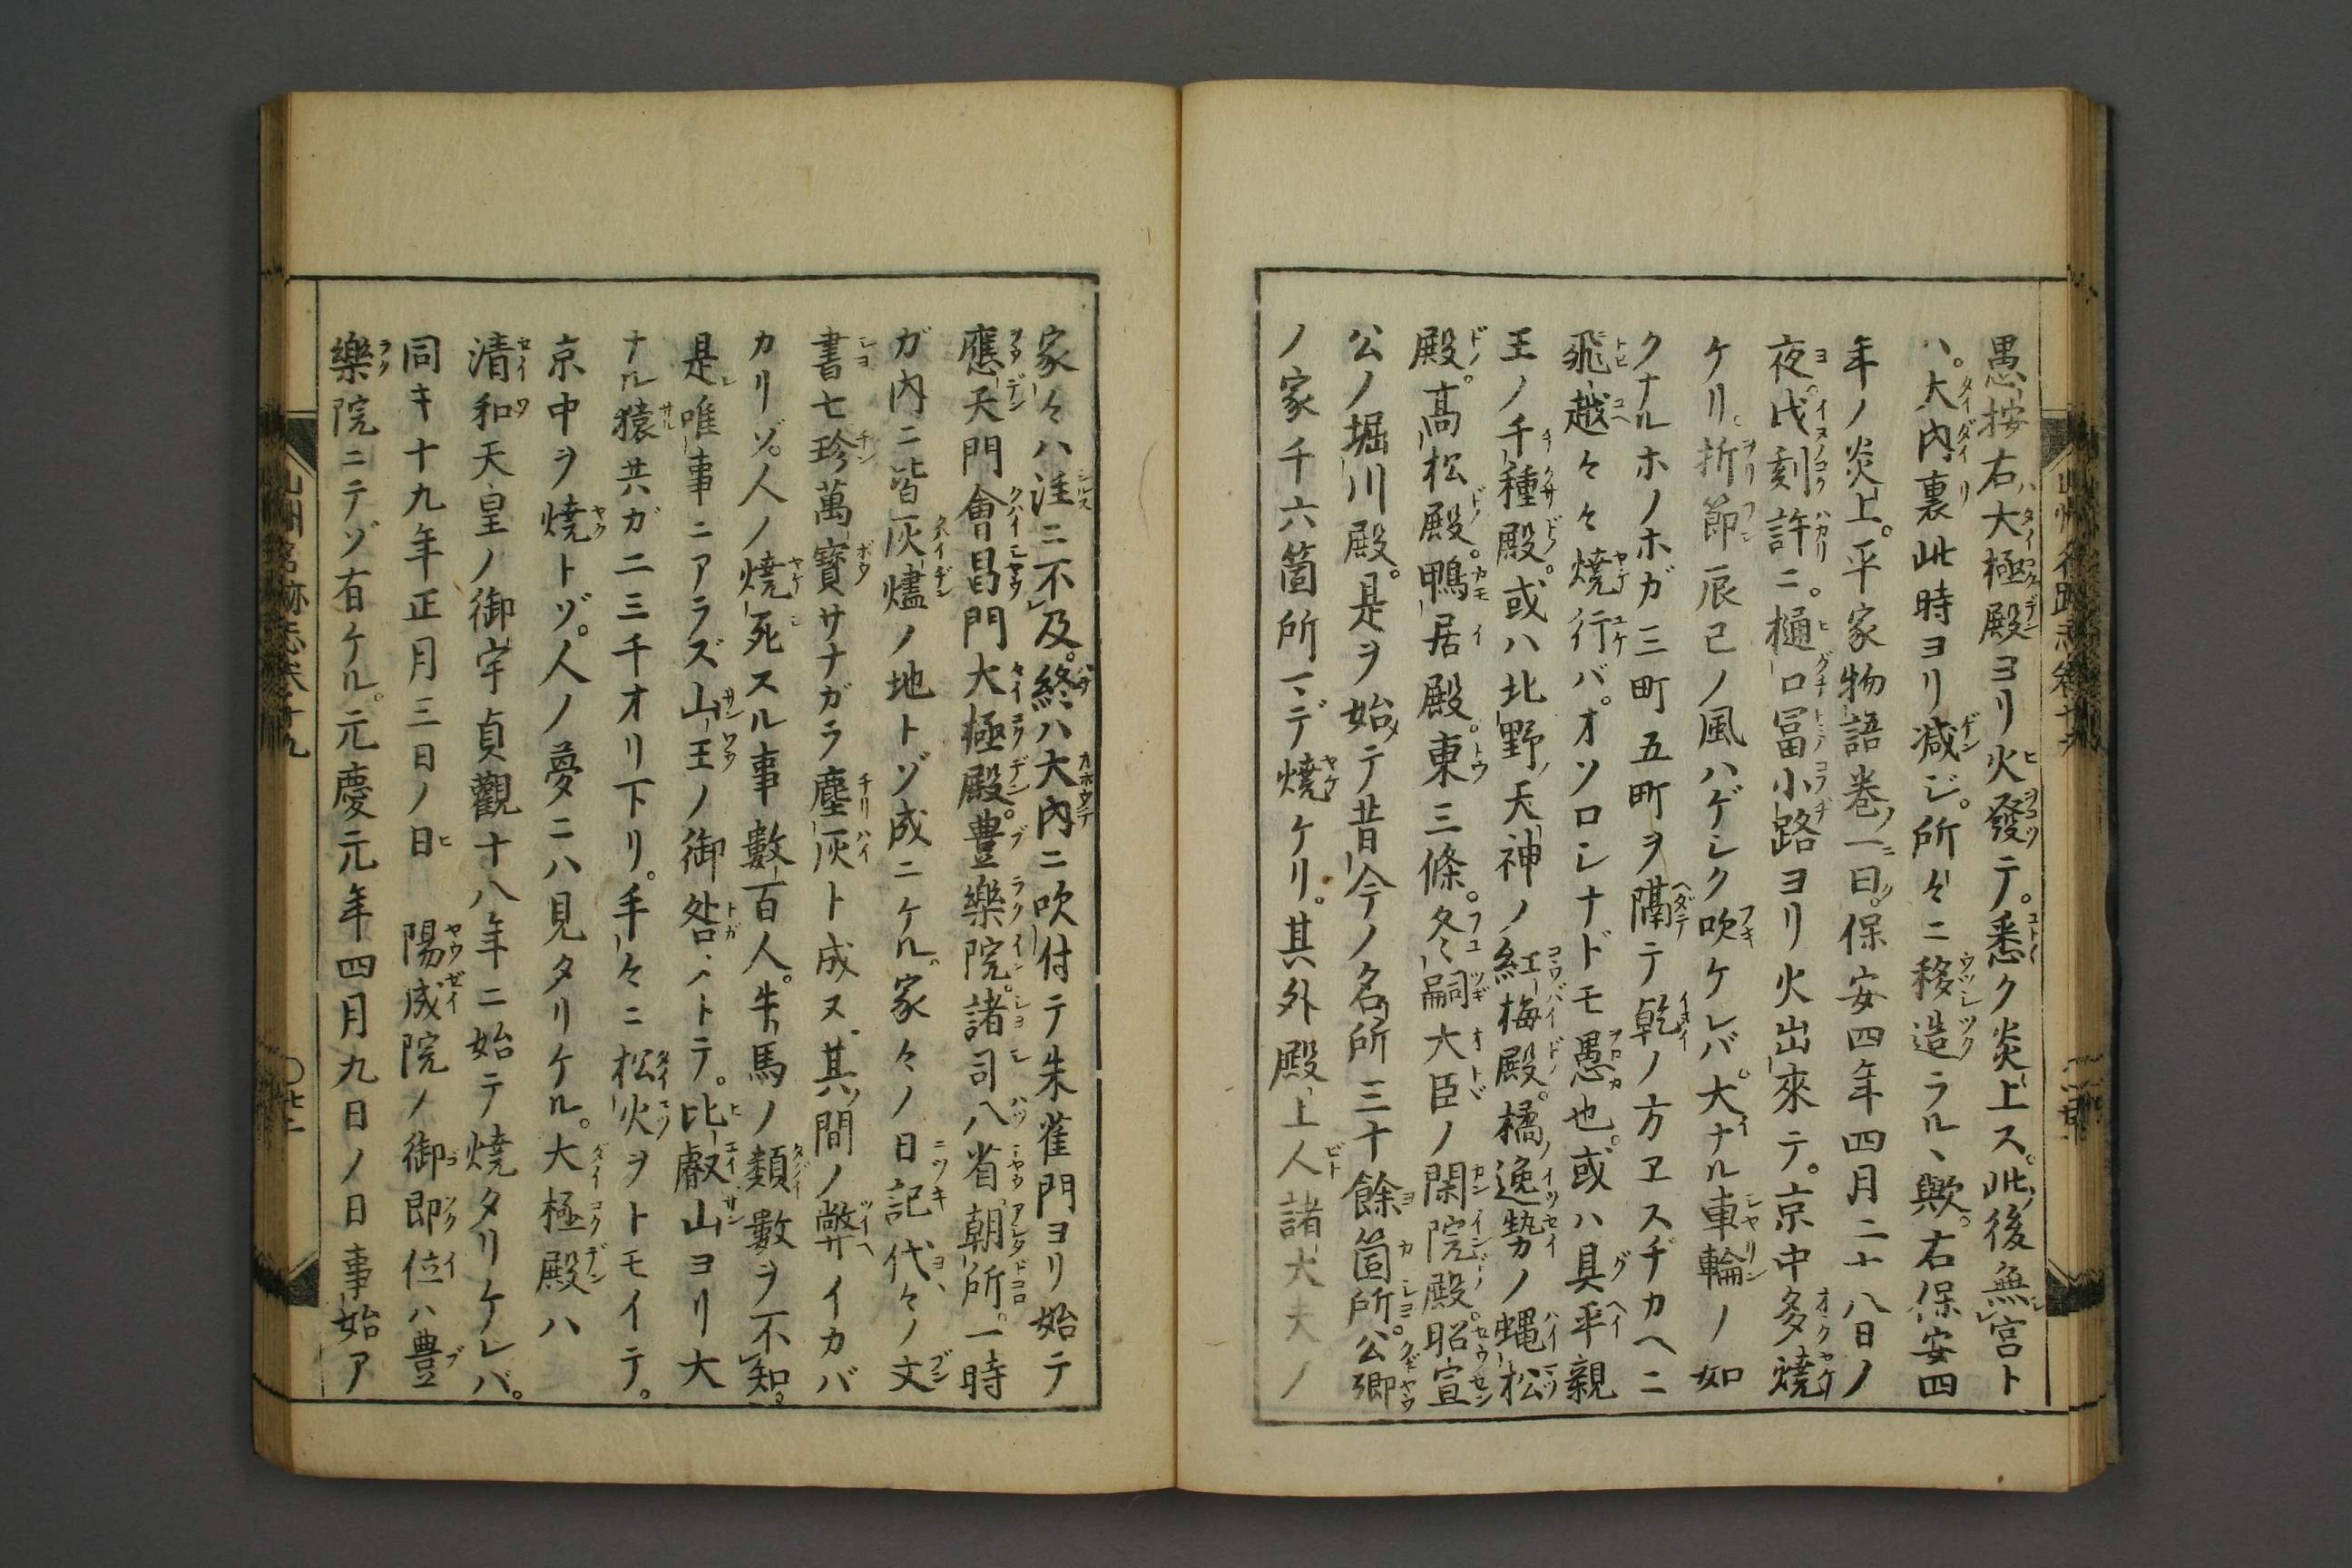 愚按右大極殿ヨリ火發テ。悉ク炎上ス。此後無宮ト
ハ。大内裏此時ヨリ減ジ。所々ニ移造ラル丶歟。右保安四
年ノ炎上。平家物語巻ノ一ニ曰ク。保安四年四月二十八日ノ
夜。戌刻許ニ。樋口冨小路ヨリ火出來テ。京中多焼
ケリ。折節辰巳ノ風ハゲシク吹ケレバ。大ナル車輪ノ如
クナルホノホガ三町五町ヲ隔テ乾ノ方ヱスヂカヘニ
飛越々々焼行バ。オソロシナドモ愚也。或ハ具平親
王ノ千種殿。或ハ北野ノ天神ノ紅梅殿。橘ノ逸勢ノ蠅松
殿。髙松殿。鴨居殿。東三條。冬嗣大臣ノ閑院殿。昭宣
公ノ堀川殿。是ヲ始メテ昔今ノ名所三十餘箇所。公卿
ノ家千六箇所マデ焼ケリ。其外殿上人諸大夫ノ
家々ハ注ニ不及。終ハ大内ニ吹付テ朱雀門ヨリ始テ
應天門會昌門大極殿。豊樂院。諸司八省朝所。一時
ガ内ニ皆灰燼ノ地トゾ成ニケル。家々ノ日記代々ノ文
書七珍萬寳サナガラ塵灰ト成ヌ。其間ノ弊イカバ
カリゾ。人ノ焼死スル事數百人。牛馬ノ類數ヲ不知。
是唯事ニアラズ山王ノ御咎メトテ。比叡山ヨリ大
ナル猿共ガ二三千オリ下リ。手々ニ松火ヲトモイテ。
京中ヲ焼トゾ。人ノ夢ニハ見タリケル。大極殿ハ
清和天皇ノ御宇貞觀十八年ニ始テ焼タリケレバ。
同キ十九年正月三日ノ日 陽成院ノ御即位ハ豊
樂院ニテゾ有ケル。元慶元年四月九日ノ日事始ア
山州名跡志巻十九